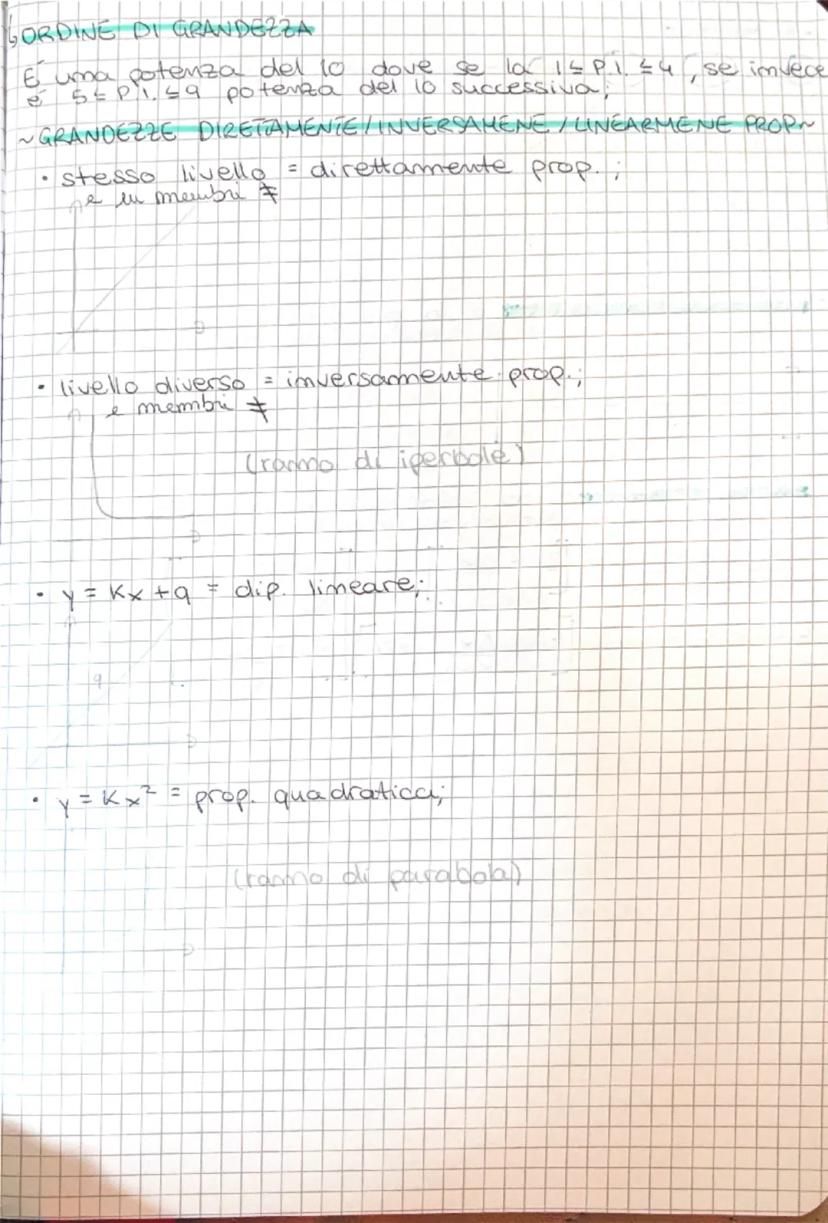 ↳ORDINE DI GRANDEZZA
É una potenza del 10 dove se la 1≤ P.I. ≤4, se invece
é 5≤ P.I. ≤9 potenza del 10 successiva;
~GRANDEZZE DIRETAMENTE/INVERSAMENE/LINEARMENE PROP~
• stesso livello = direttamente prop. ;
e in membri ≠
• livello diverso = inversamente prop.;
e membri ≠
(ramo di iperbole)
• y = Kx + q = dip. lineare;
q
• y = Kx² = prop. quadratica;
(ramo di parabola)